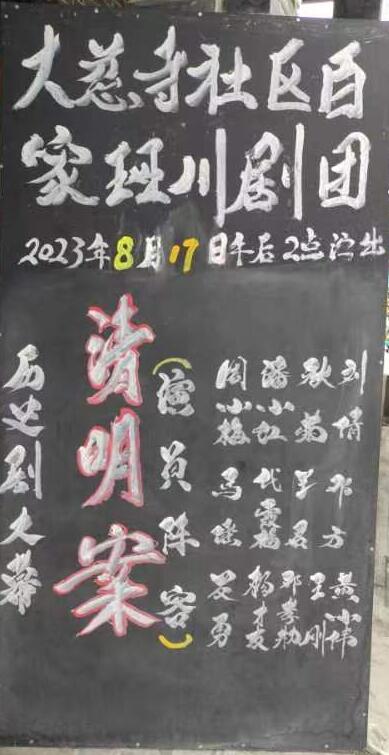 大慈寺社区百
家班川剧团
2023年8月17日午后2点演出
历史剧大幕
清明案
(演员阵容)
刘倩 邓方 黄小伟
秋菊 王刚
潘小红 代雪梅 杨才友 邓孝勃
周小梅 马 安勇